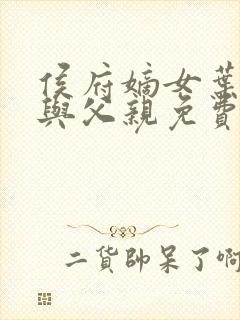 侯府嫡女葉
與父親免費
二貨帥呆了啊